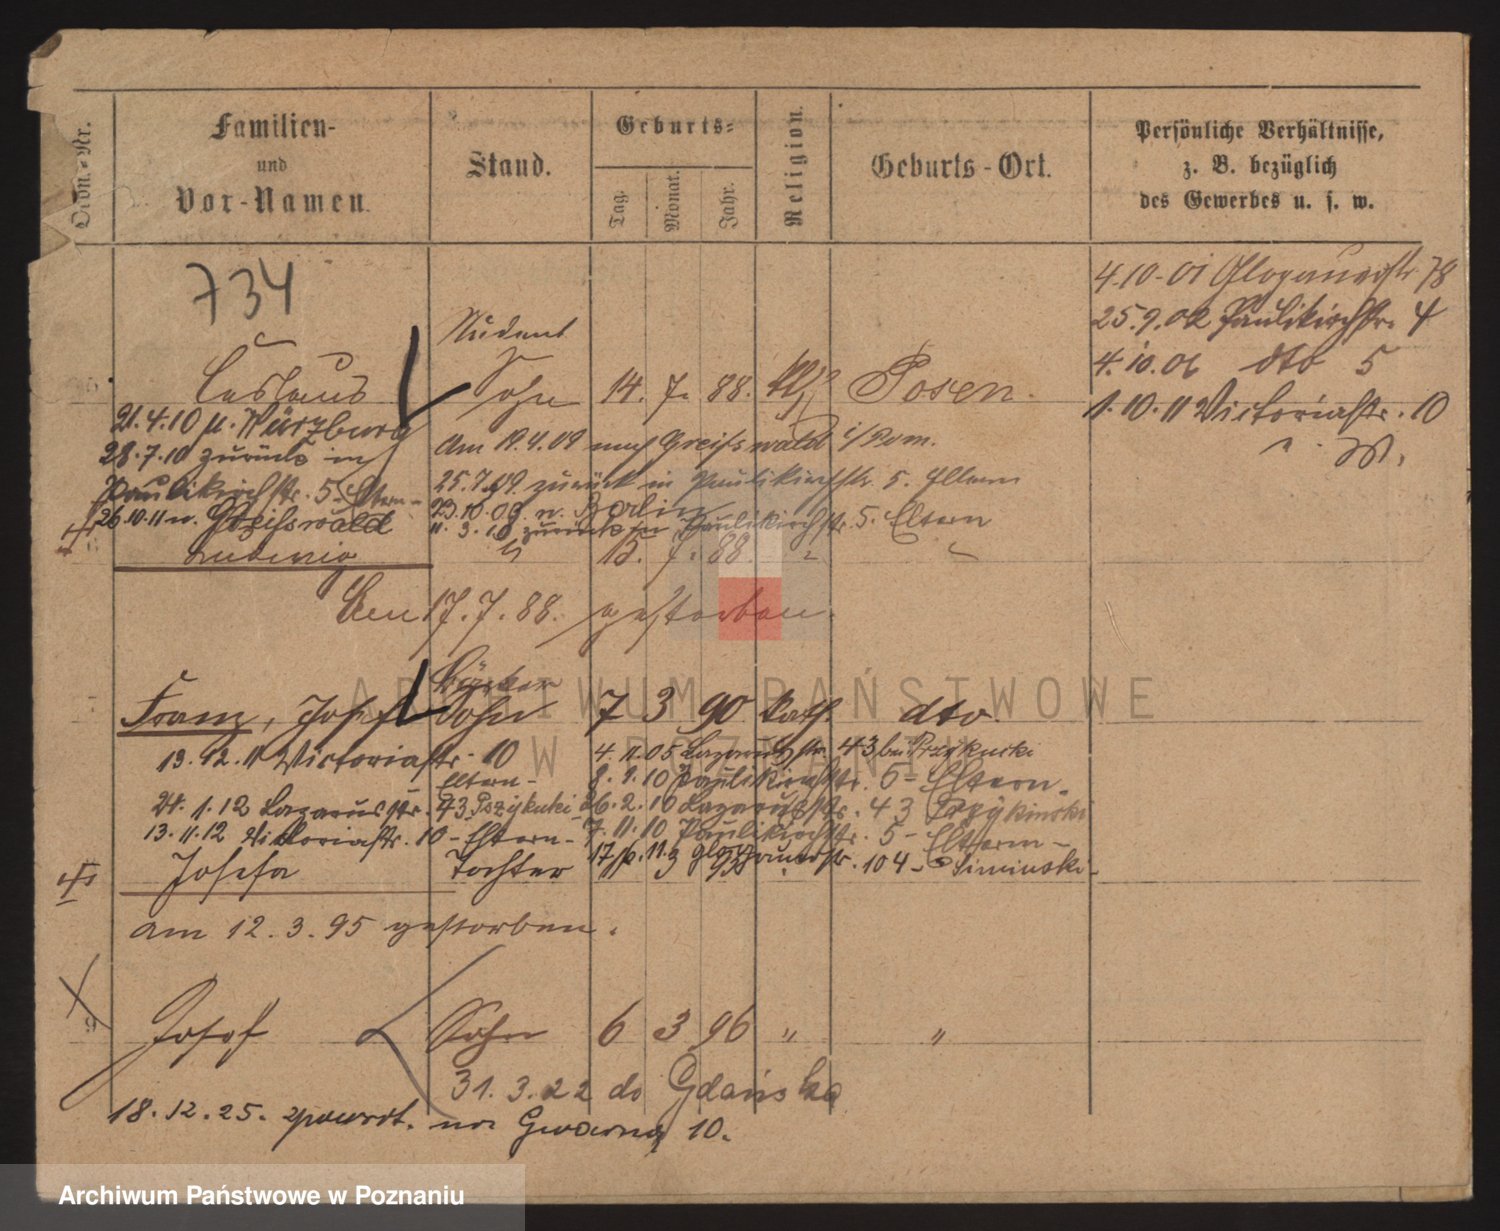 Ordn.-Nr.
Familien-
und
Vor-Namen.
Stand.
Geburts-
Tag.
Monat.
Jahr.
Religion.
Geburts-Ort.
Persönliche Verhältnisse,
z. B. bezüglich
des Gewerbes u. s. w.
734
4.10.01 Glogauerstr 78
25.9.02 Paulikirchstr. 4
4.10.06 dto 5
1.10.11 Victoriastr. 10
Student
Ceslaus Sohn 14. 7. 88. kth Posen.
21.4.10 n. Würzburg
28.7.10 zurück in
Paulikirchstr. 5. Eltern-
26.10.11 n. Greifswald
am 19.4.09 nach Greifswald i/Pom.
25.7.09. zurück in Paulikirchstr. 5. Eltern
23.10.09. n. Berlin
11.3.10 zurück in Paulikirchstr. 5. Eltern
Ludwig " 15. 7. 88. "
Am 17.7.88. gestorben.
Bäcker
Franz, Josef Sohn 7 3 90 kath. dto.
13.12.11 Victoriastr. 10
Eltern-
24.1.12 Lazarusstr. 43
13.11.12 Victoriastr. 10 - Eltern-
4.11.05 Lazarusstr. 43 bei
8.1.10 Paulikirchstr. 5 - Eltern.
26.2.10 Lazarusstr. 43
7.11.10 Paulikirchstr. 5 - Eltern-
17. 11. Glogauerstr. 104 - Siminski-
Josefa Tochter 3 95
am 12.3.95 gestorben.
9
Josef Sohn 6 3 96 " "
31.3.22 do Gdańska
18.12.25. powrót. na Gwarną 10.
ARCHIWUM PAŃSTWOWE
W POZNANIU
Archiwum Państwowe w Poznaniu